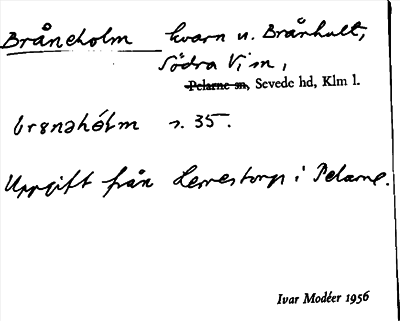 Bråneholm kvarn u. Brånhult,
Södra Vi sn,
Pelarne sn, Sevede hd, Klm l.
s. 35.
Uppgift från i Pelarne.
Ivar Modéer 1956